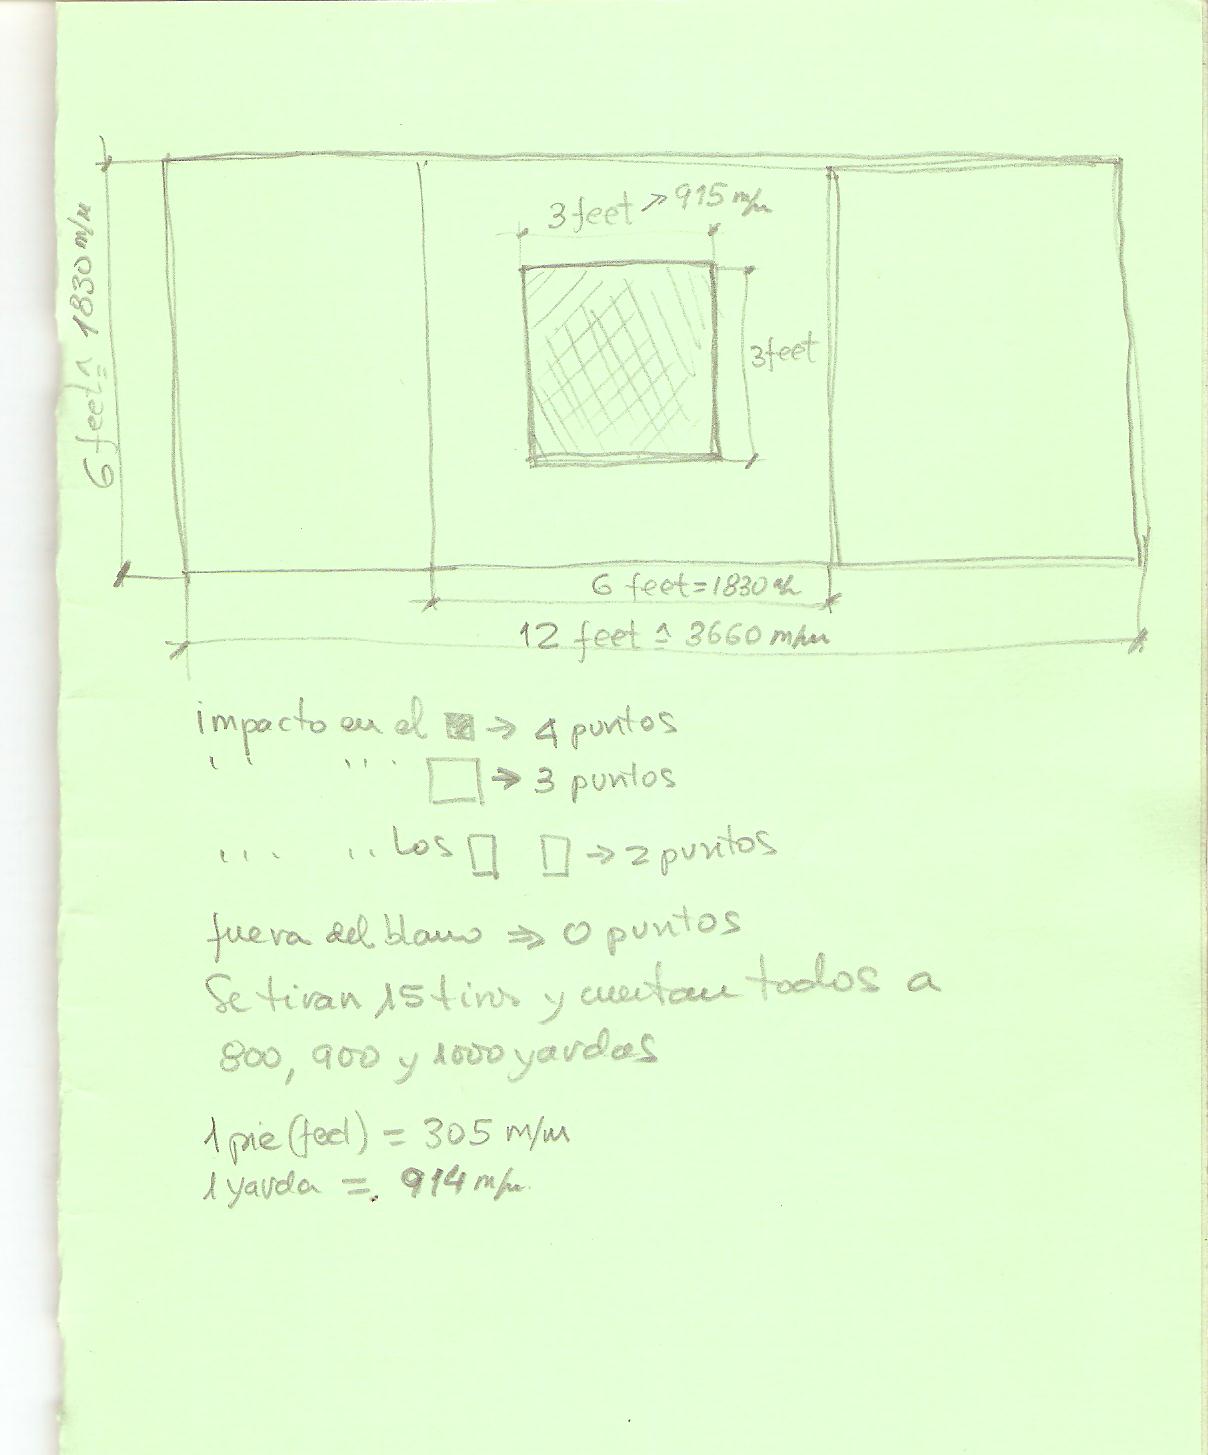 3 feet > 915 m/m
6 feet ≙ 1830 m/m
3 feet
6 feet = 1830 m
12 feet ≙ 3660 m/m
impacto en el → 4 puntos
'' '' → 3 puntos
'' '' Los → 2 puntos
fuera del blanco ⇒ 0 puntos
Se tiran 15 tiros y cuentan todos a
800, 900 y 1000 yardas
1 pie (feet) = 305 m/m
1 yarda = 914 m/m